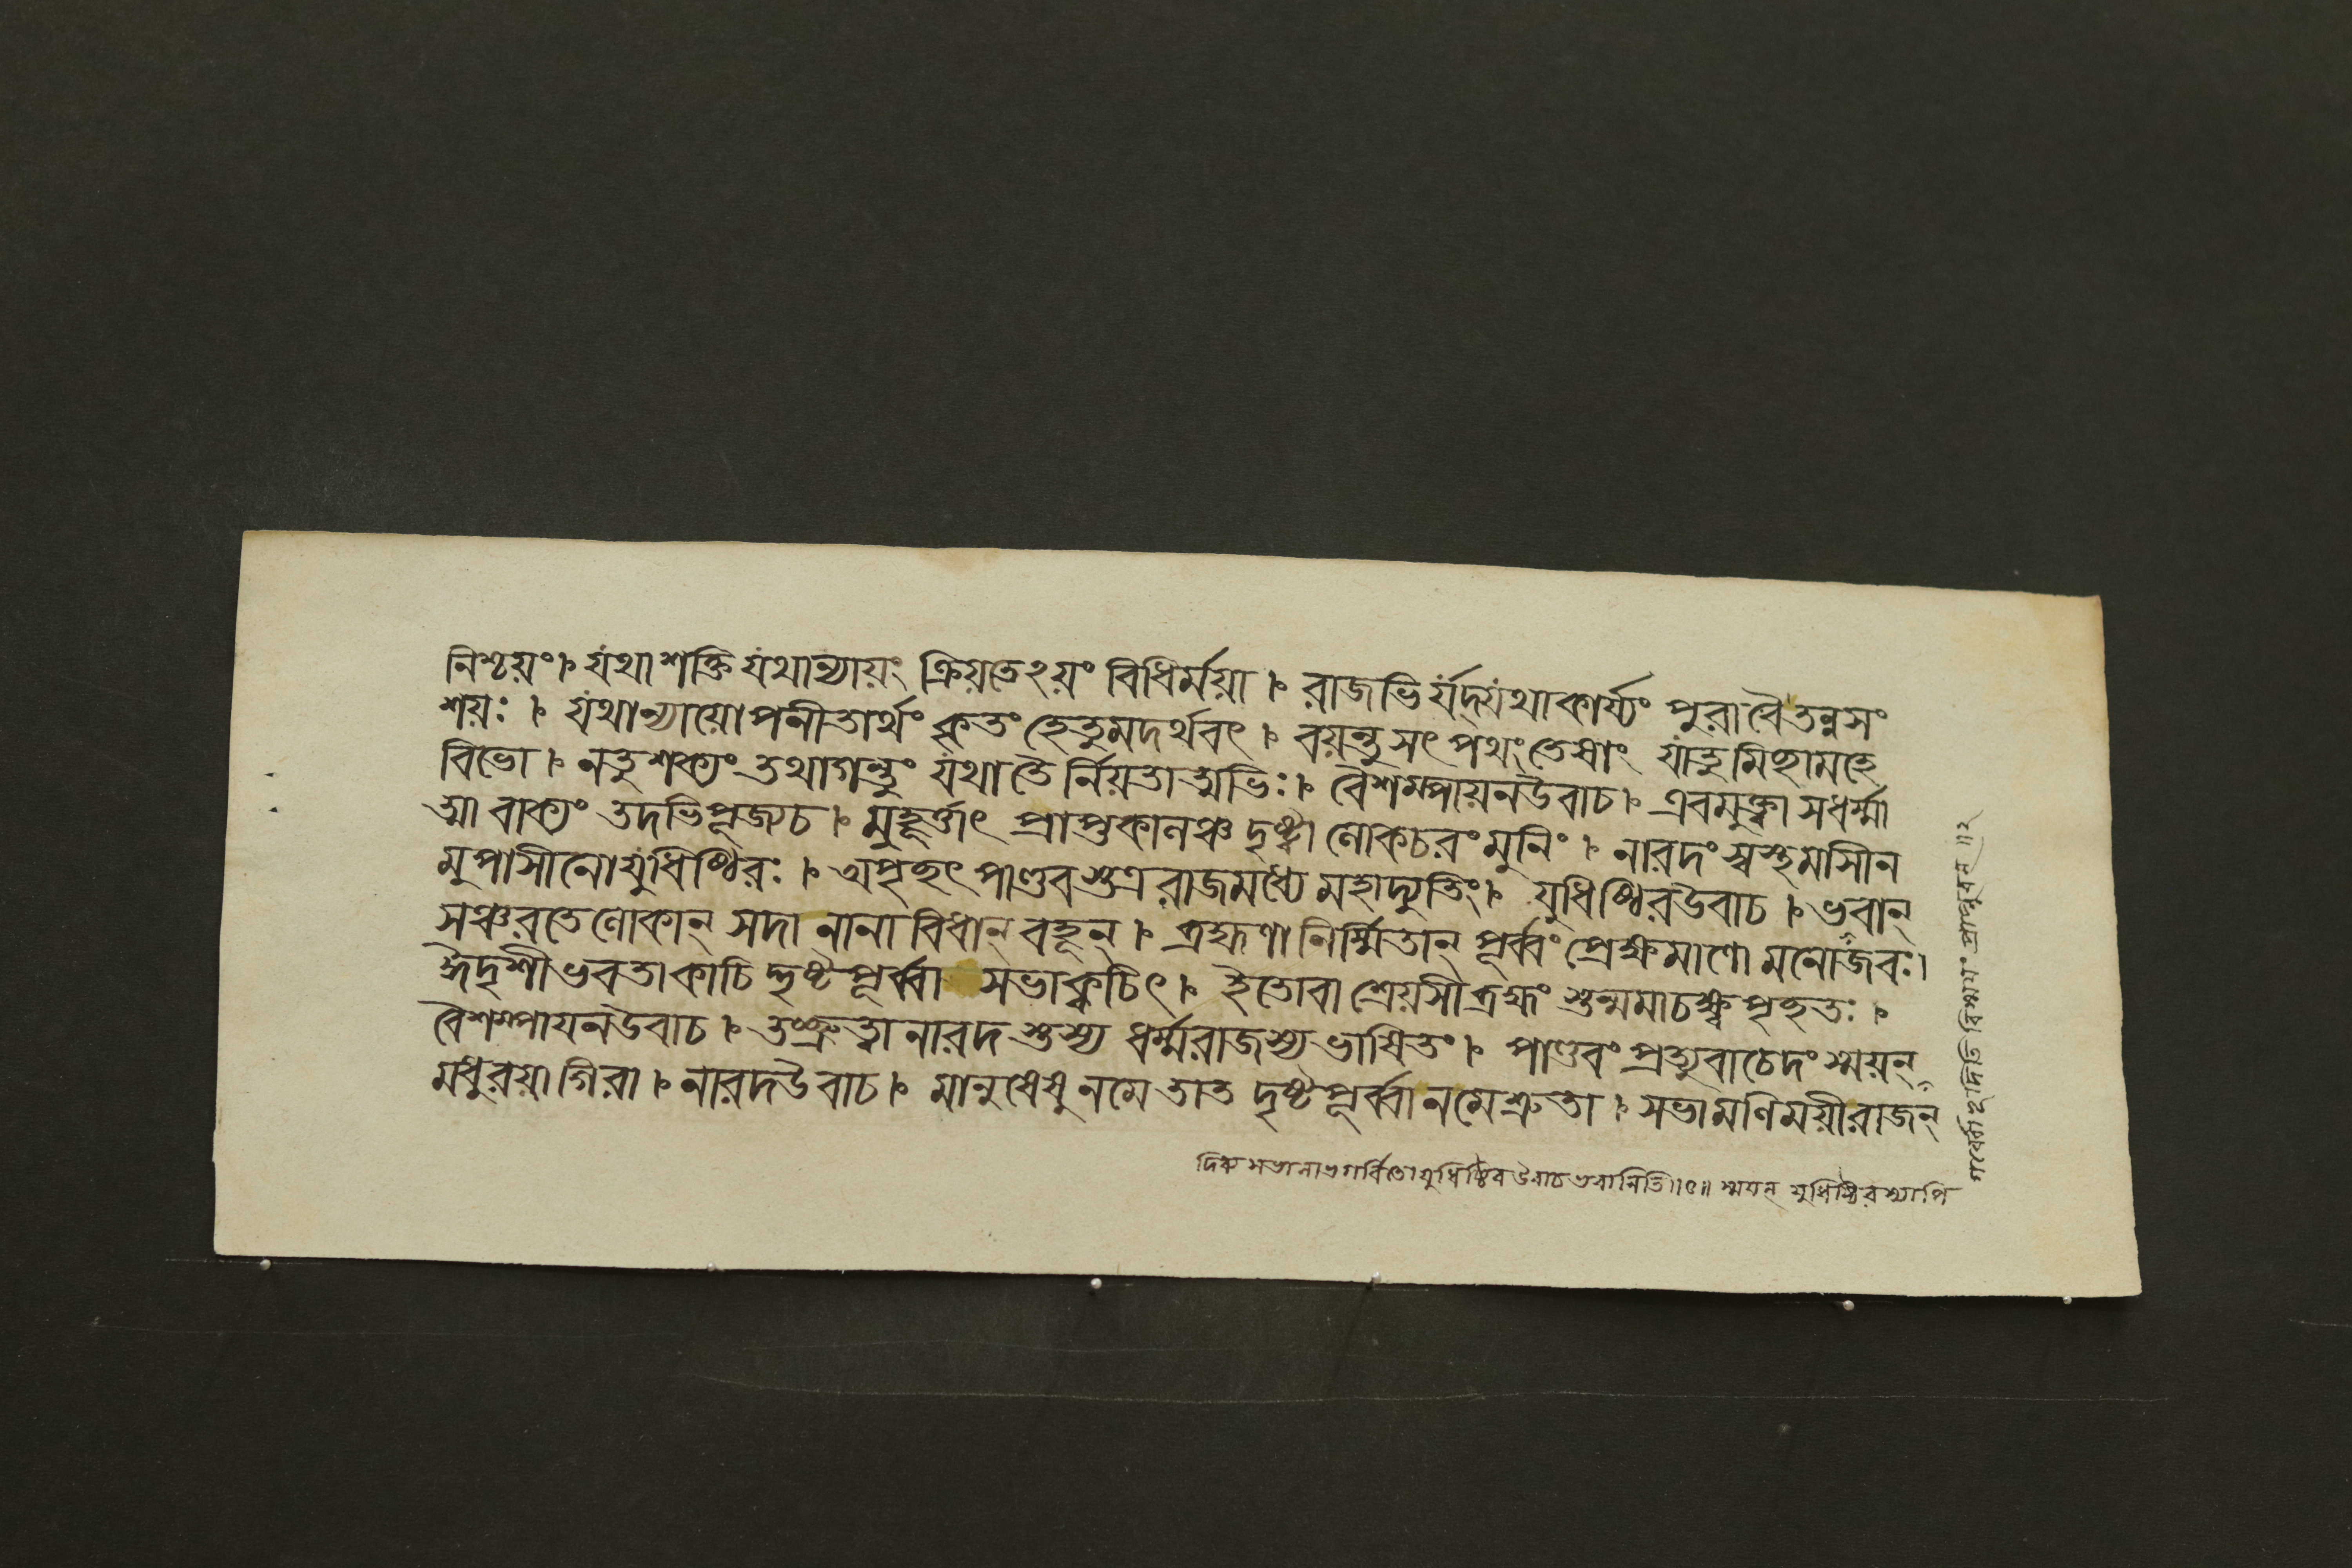 নিশ্চয়ং। যথাশক্তি যথান্যায়ং ক্রিয়তেঽয়ং বিধির্ময়া। রাজভির্যদ্যথাকার্য্যং পুরাবৈতন্নসং
শয়ঃ। যথান্যায়োপনীতার্থং কৃতং হেতুমদর্থবৎ। বয়ন্তুসৎপথংতেষাং যাতুমিছামহে
বিভো। নতুশক্যং তথাগন্তুং যথা তৈর্নিয়তাত্মভিঃ। বৈশম্পায়নউবাচ। এবমুক্ত্বা সধর্ম্মা
ত্মা বাক্যং তদভিপূজ্যচ। মুহূর্ত্তাৎ প্রাপ্তকালঞ্চ দৃষ্ট্বা লোকচরংমুনিং। নারদং স্বস্থমাসীন
মুপাসীনোযুধিষ্ঠিরঃ। অপৃছৎ পাণ্ডবস্তত্ররাজমধ্যে মহাদ্যুতিং। যুধিষ্ঠিরউবাচ। ভবান্
সঞ্চরতেলোকান্ সদা নানা বিধান্ বহূন্। ব্রহ্মণানির্ম্মিতান্ পূর্ব্বং প্রেক্ষমাণো মনোজবঃ।
ঈদৃশীভবতাকাচিদ্দৃষ্টপূর্ব্বা সভাক্বচিৎ। ইতোবা শ্রেয়সীব্রহ্মং স্তন্মমাচক্ষ্ব পৃছতঃ।
বৈশম্পায়নউবাচ। তৎশ্রুত্বা নারদস্তস্য ধর্ম্মরাজস্য ভাষিতং। পাণ্ডবং প্রত্যুবাচেদং স্ময়ন্
মধুরয়া গিরা। নারদউবাচ। মানুষেষুনমেতাত দৃষ্টপূর্ব্বানমেশ্রুতা। সভামণিময়ীরাজন্
যুধিষ্ঠিরউবাচ ভবানিতি॥৫॥ স্ময়ন্ যুধিষ্ঠিরস্যাপি